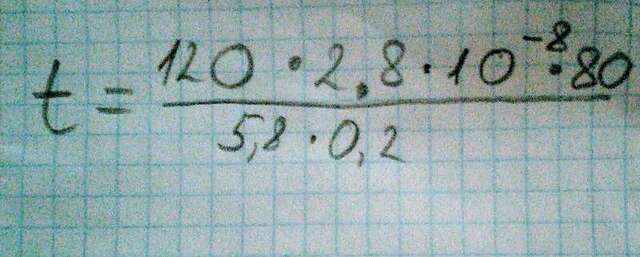 t = 120 · 2,8 · 10⁻⁸ · 80
5,8 · 0,2